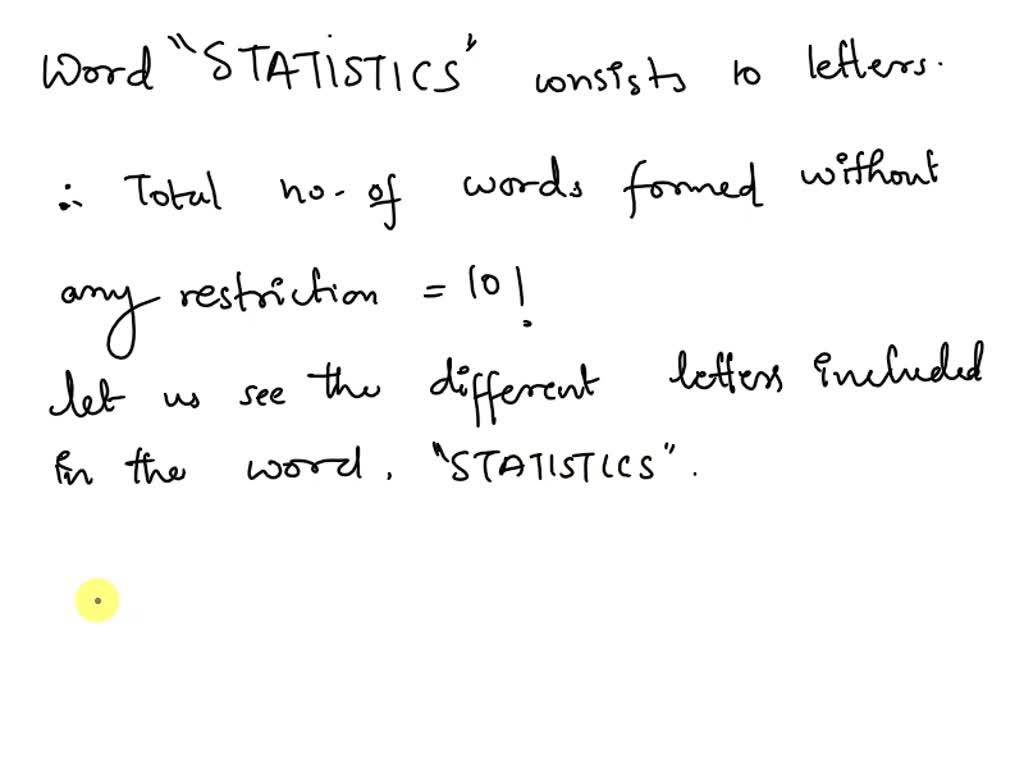 Word "STATISTICS" consists 10 letters.
∴ Total no. of words formed without
any restriction = 10!
let us see the different letters included
in the word. "STATISTICS".